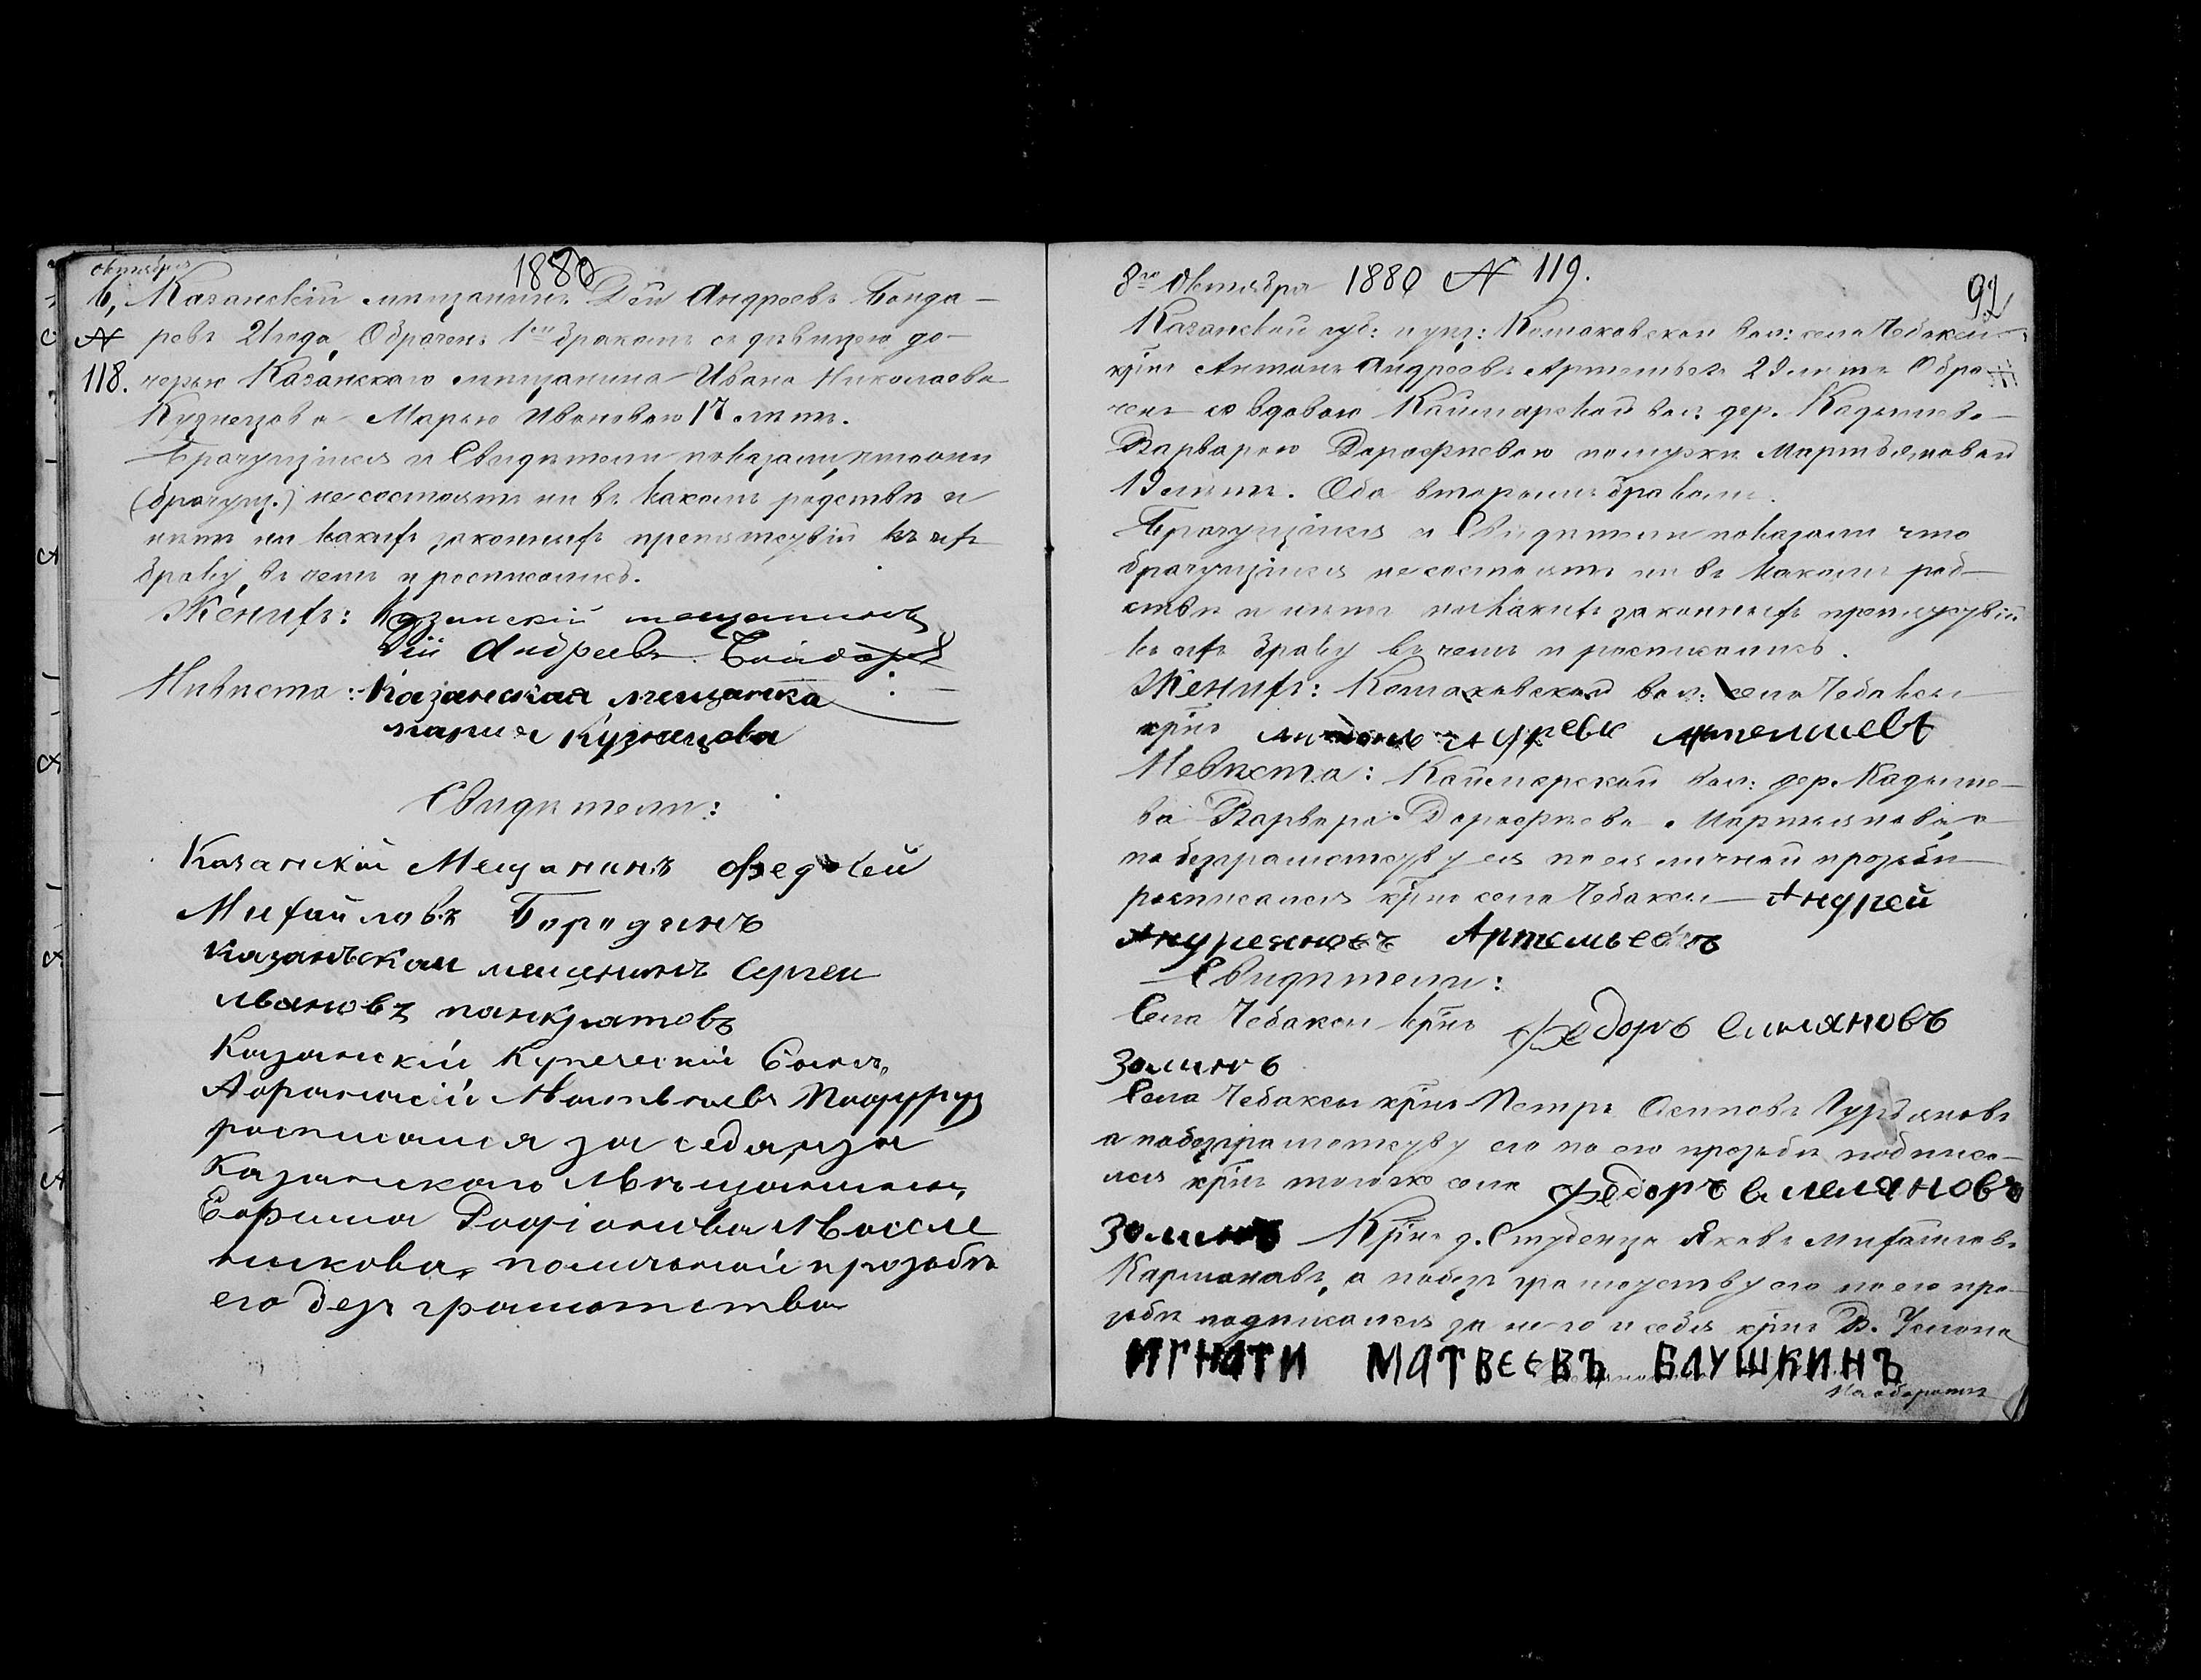 октября
1880
6, Казанскій мещанинъ Дій Андреевъ Бонда-
№ ревъ 21 года, Обрачен. 1мъ бракомъ съ дѣвицею до-
118. черью Казанскаго мещанина Ивана Николаева
Кузнецова Марью Ивановою 17 лѣтъ.
Брачущіися и Свидѣтели показали, что они
(брачущ.) не состоятъ ни въ какомъ родствѣ и
нѣтъ ни какихъ законныхъ препятствій къ ихъ
браку, въ чемъ и росписались.
Женихъ: Казанскій мещанинъ
Дій Андреевъ
Нивѣста: Казанская мещанка
мария Кузнецова
Свидѣтели:
Казанскій Мещанинъ
Михайловъ Бородинъ
Казанъской мещенинъ Сергеи
Ивановъ панкратовъ
Казанскій Купеческій Сынъ,
Афанасій Матвѣевъ
росписался за себя, и за
Казанскаго Мѣщанина,
Ефима Родіонова Масле
никова, поличной прозьбѣ
его безъ грамотства
8го Октября 1880 № 119.
92
Казанской губ: и уѣз: Кощаковской вол: села Чебакси
крнъ Антонъ Андреевъ Артемьевъ 29 лѣтъ Обра-
ченъ со вдовою Каймарской вол: дер. Кадышево
Варварою Дорофѣевою помужѣ Мартьяновой
19 лѣтъ. Оба вторымъ бракомъ.
Брачущіися и Свидѣтели показали что
брачущіися не состоятъ ни въ какомъ род-
ствѣ и нѣтъ никакихъ законныхъ препятствій
къ ихъ браку въ чемъ и росписались.
Женихъ: Кощаковской вол: села Чебакси
крнъ
Невѣста: Каймарской вол: дер. Кадыше-
ва Варвара Дорофѣева Мартьянова, а
по безграмотству ея по ея личной прозьбѣ
росписался крнъ села Чебакси Андрей
Артемьевъ
Свидѣтели:
Села Чебакси крнъ Федоръ Емиляновъ
Зоминъ
Села Чебаксы крнъ Петръ Осиповъ Гурьяновъ
а по безграмотству его по его прозьбѣ подписа-
лся крнъ тогоже села Федоръ Емеляновъ
Зоминъ Крнъ д. Студенца Яковъ Михайловъ
а по безъ грамотству его по его про-
зьбѣ подписался за него и себя крнъ Д.
ИГНАТИ МАТВЕЕВЪ БАУШКИНЪ
На оборотѣ